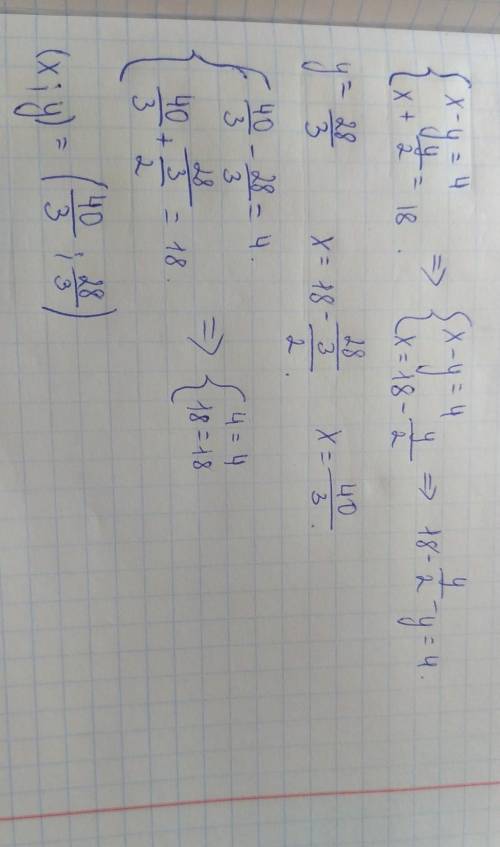 { x - y = 4
{ x + y/2 = 18. => { x - y = 4
{ x = 18 - y/2 => 18 - y/2 - y = 4.
y = 28/3 x = 18 - 28/3/2. x = 40/3.
{ 40/3 - 28/3 = 4.
{ 40/3 + 28/3/2 = 18. => { 4 = 4
{ 18 = 18
(x ; y) = (40/3 ; 28/3)